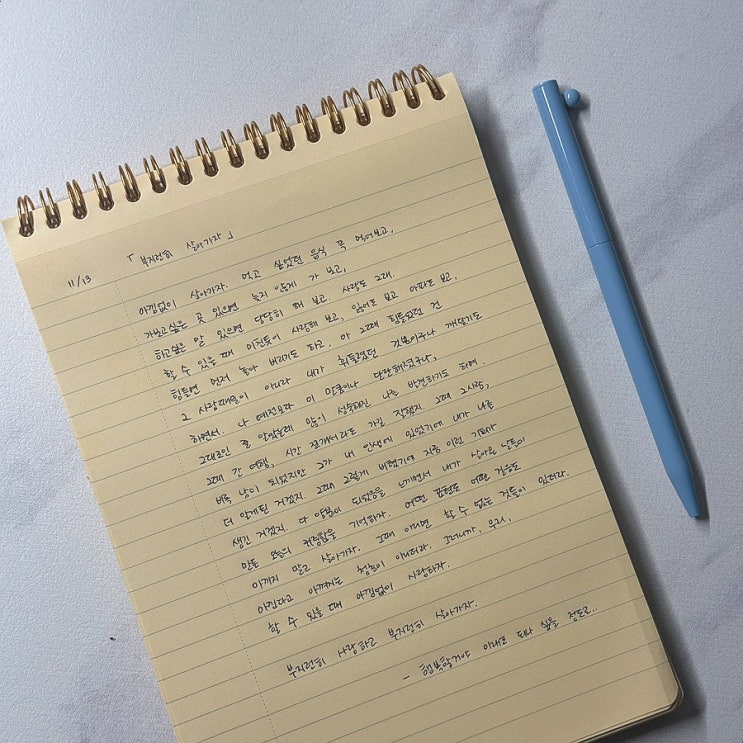 「부지런히 살아가자」
11/13
아낌없이 살아가자. 먹고 싶었던 음식 꼭 먹어보고,
가보고 싶은 곳 있으면 늦지 않게 가 보고,
하고싶은 말 있으면 당당히 해 보고. 사랑도 그래.
할 수 있을 때 미친듯이 사랑해 보고, 잃어도 보고 아파도 보고,
힘들면 먼저 놓아 버리기도 하고. 아 그때 힘들었던 건
그 사람때문이 아니라 내가 휘둘렸던 것뿐이구나 깨닫기도
하면서. 나 예전보다 이 만큼이나 단단해졌구나,
그대로인 줄 알았는데 많이 성숙해진 나를 발견하기도 하며.
그때 간 여행, 시간 쪼개서라도 가길 잘했지. 그때 그사람,
비록 남이 되었지만 그가 내 인생에 있었기에 내가 나를
더 알게된 거겠지. 그때 그렇게 버텼기에 지금 이런 기회가
생긴 거겠지. 다 양분이 되었음을 느끼면서 내가 살아온 날들이
만든 오늘의 귀중함을 기억하자. 어떤 표현도 어떤 걸음도
아끼지 말고 살아가자. 그때 아니면 할 수 없는 것들이 있더라.
아낀다고 아껴지는 청춘이 아니더라. 그러니까, 우리,
할 수 있을 때 아낌없이 사랑하자.
부지런히 사랑하고 부지런히 살아가자.
- 행복할거야 이래도 되나 싶을 정도로..